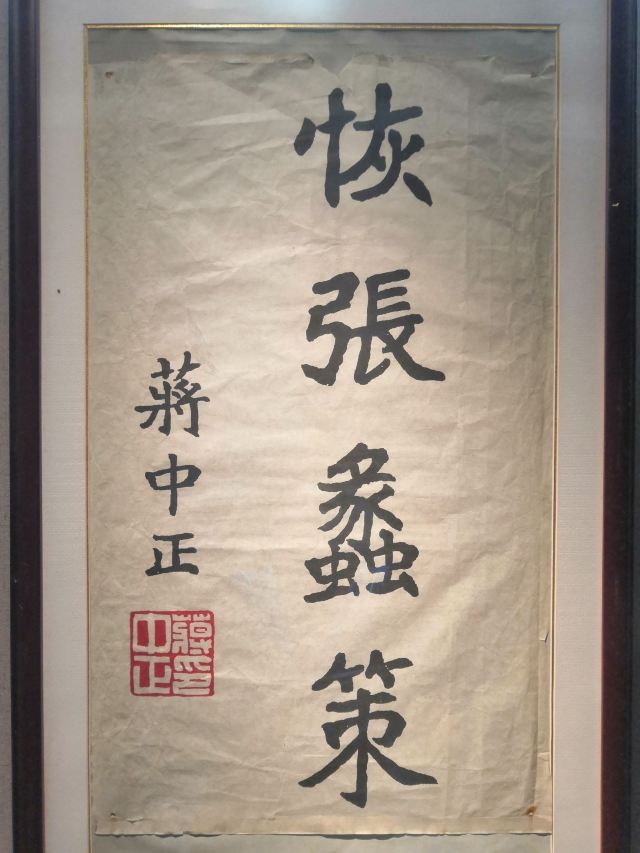 恢張蠡策
蔣中正
蔣中正印